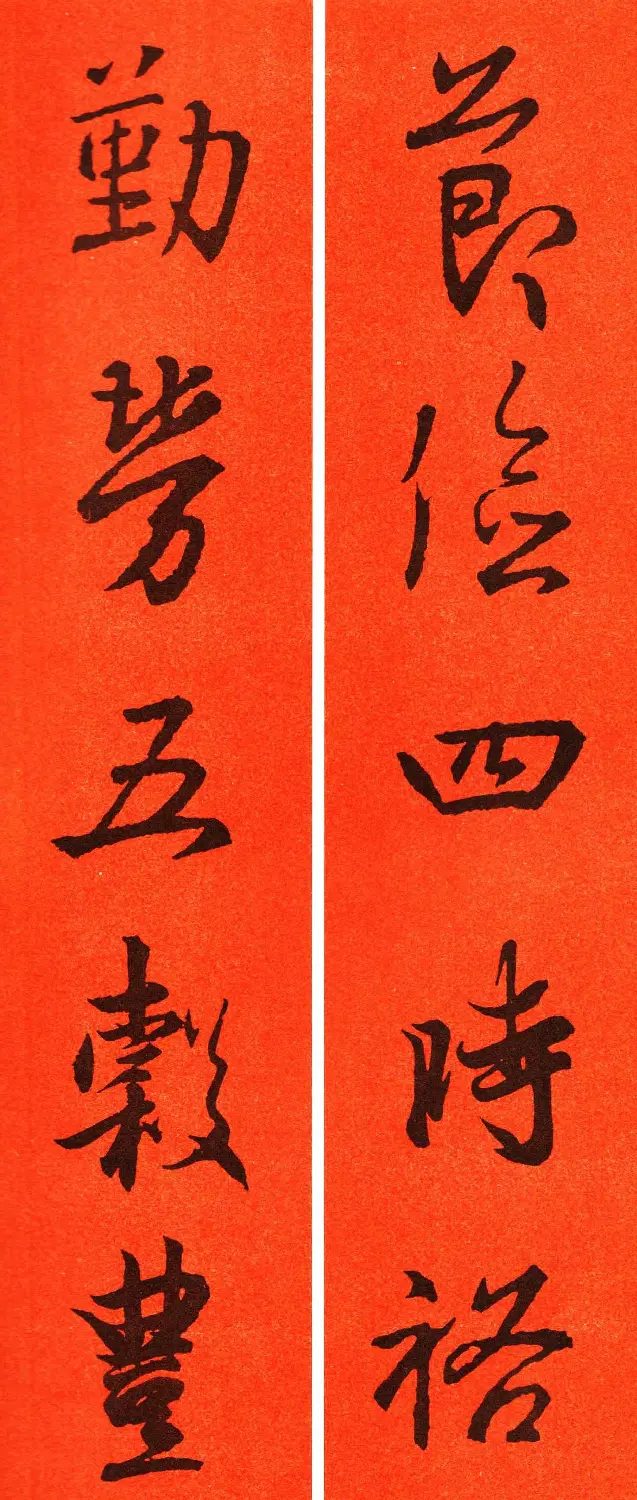 節儉四時裕
勤勞五穀豐